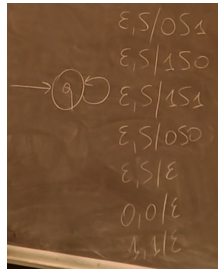 ε,S/0S1
ε,S/1S0
q
ε,S/1S1
ε,S/0S0
ε,S/ε
0,0/ε
1,1/ε